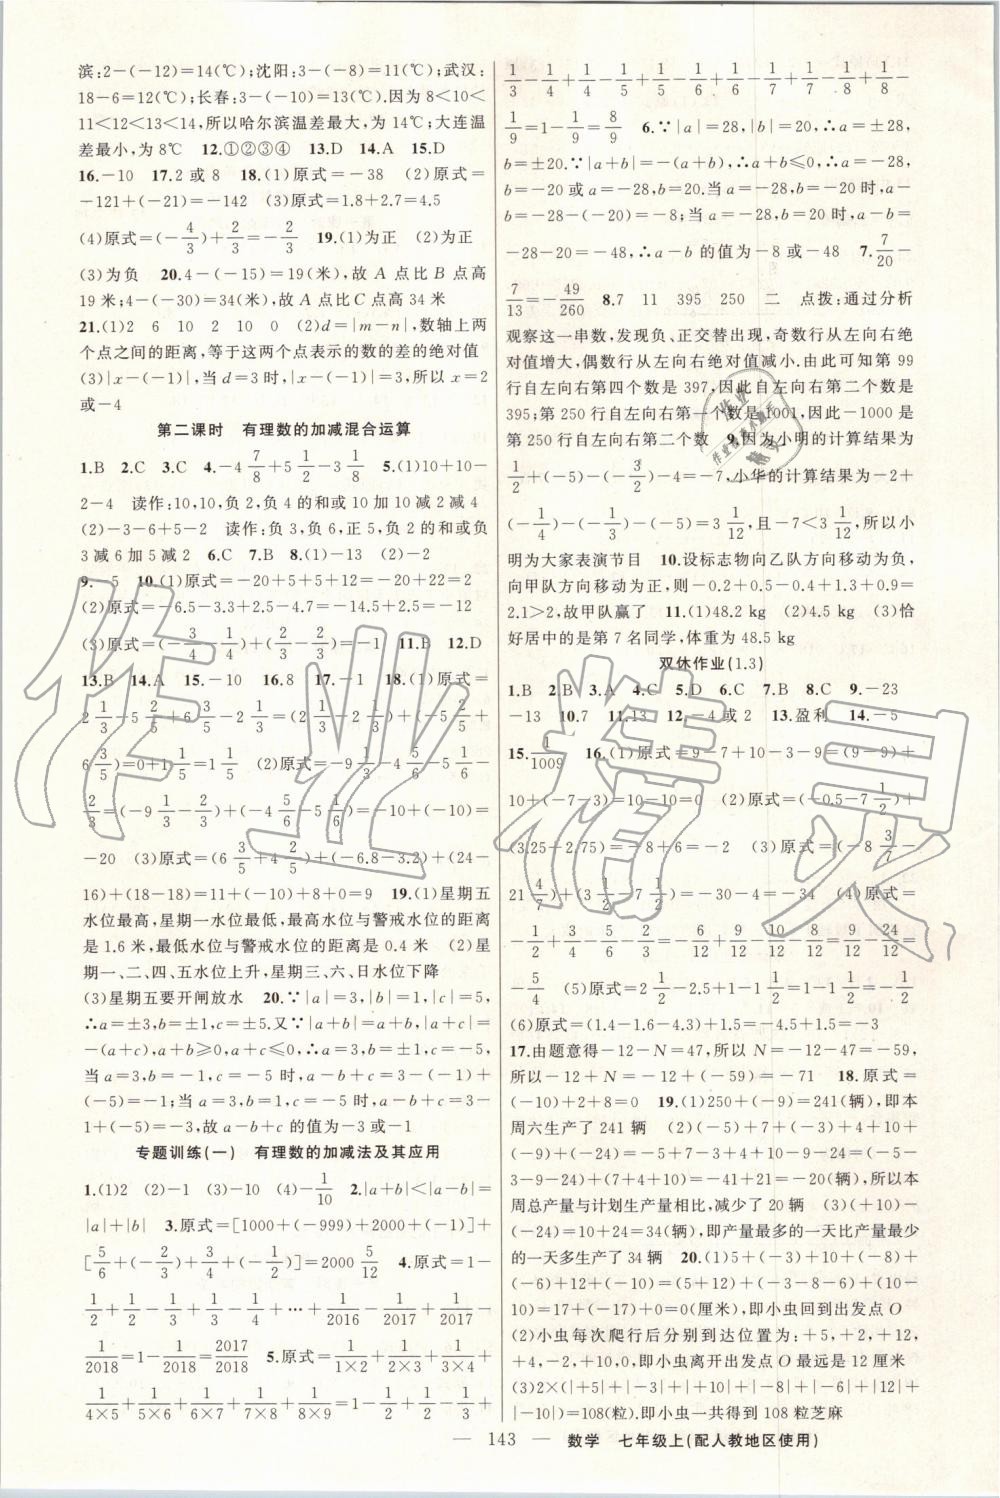 滨:2-(-12)=14(℃);沈阳:3-(-8)=11(℃);武汉:
18-6=12(℃);长春:3-(-10)=13(℃).因为 8<10<
11<12<13<14,所以哈尔滨温差最大,为 14℃;大连温
差最小,为 8℃ 12.①②③④ 13.D 14.A 15.D
16.-10 17.2 或 8 18.(1)原式=-38 (2)原式=
-121+(-21)=-142 (3)原式=1.8+2.7=4.5
(4)原式=(-4/3)+2/3=-2/3 19.(1)为正 (2)为正
(3)为负 20.4-(-15)=19(米),故 A 点比 B 点高
19 米;4-(-30)=34(米),故 A 点比C 点高 34 米
21.(1)2 6 10 2 10 0 (2)d=|m-n|,数轴上两
个点之间的距离,等于这两个点表示的数的差的绝对值
(3)|x-(-1)|,当 d=3 时,|x-(-1)|=3,所以 x=2
或-4
第二课时 有理数的加减混合运算
1.B 2.C 3.C 4.-4 7/8+5 1/2-3 1/8 5.(1)10+10-
2-4 读作:10,10,负 2,负 4 的和或 10 加 10 减 2 减 4
(2)-3-6+5-2 读作:负 3,负 6,正 5,负 2 的和或负
3 减 6 加 5 减 2 6.C 7.B 8.(1)-13 (2)-2
9.-5 10.(1)原式=-20+5+5+12=-20+22=2
(2)原式=-6.5-3.3+2.5-4.7=-14.5+2.5=-12
(3)原式=(-3/4-1/4)+(2/3-2/3)=-1 11.B 12.D
13.B 14.A 15.-10 16.8 17.-1 18.(1)原式=
2 1/3-5 2/5+6 3/5-2 1/3=(2 1/3-2 1/3)+(-5 2/5+
6 3/5)=0+1 1/5=1 1/5 (2)原式=-9 1/3-4 5/6-5 1/6-
2/3=(-9 1/3-2/3)+(-4 5/6-5 1/6)=-10+(-10)=
-20 (3)原式=(6 3/5+4 2/5)+(-6.8-3.2)+(24-
16)+(18-18)=11+(-10)+8+0=9 19.(1)星期五
水位最高,星期一水位最低,最高水位与警戒水位的距离
是 1.6 米,最低水位与警戒水位的距离是 0.4 米 (2)星
期一、二、四、五水位上升,星期三、六、日水位下降
(3)星期五要开闸放水 20.∵|a|=3,|b|=1,|c|=5,
∴a=±3,b=±1,c=±5.又∵|a+b|=a+b,|a+c|=
-(a+c),a+b≥0,a+c≤0,∴a=3,b=±1,c=-5,
当 a=3,b=-1,c=-5 时,a-b+c=3-(-1)+
(-5)=-1;当 a=3,b=1,c=-5 时,a-b+c=3-
1+(-5)=-3,故 a-b+c 的值为-3 或-1
专题训练(一) 有理数的加减法及其应用
1.(1)2 (2)-1 (3)-10 (4)-1/10 2.|a+b|<|a-b|=
|a|+|b| 3.原式=[1000+(-999)+2000+(-1)]+
[5/6+(-2/3)+3/4+(-1/2)]=2000 5/12 4.原式=1-
1/2+1/2-1/3+1/3-1/4+⋯+1/2016-1/2017+1/2017-
1/2018=1-1/2018=2017/2018 5.原式=1/1×2+1/2×3+1/3×4+
1/4×5+1/5×6+1/6×7+1/7×8+1/8×9=1-1/2+1/2-1/3+
1/3-1/4+1/4-1/5+1/5-1/6+1/6-1/7+1/7-1/8+1/8-
1/9=1-1/9=8/9 6.∵|a|=28,|b|=20,∴a=±28,
b=±20.∵|a+b|=-(a+b),∴a+b≤0,∴a=-28,
b=-20 或 a=-28,b=20.当 a=-28,b=-20 时,a-
b=-28-(-20)=-8;当 a=-28,b=20 时,a-b=
-28-20=-48,∴a-b 的值为-8 或-48 7.7/20-
7/13=-49/260 8.7 11 395 250 二 点拨:通过分析
观察这一串数,发现负、正交替出现,奇数行从左向右绝
对值增大,偶数行从左向右绝对值减小.由此可知第 99
行自左向右第四个数是 397,因此自左向右第二个数是
395;第 250 行自左向右第一个数是 1001,因此-1000 是
第 250 行自左向右第二个数 9.因为小明的计算结果为
1/2+(-5)-(-3/2)-4=-7,小华的计算结果为-2+
(-1/4)-(-1/3)-(-5)=3 1/12,且-7<3 1/12,所以小
明为大家表演节目 10.设标志物向乙队方向移动为负,
向甲队方向移动为正,则-0.2+0.5-0.4+1.3+0.9=
2.1>2,故甲队赢了 11.(1)48.2 kg (2)4.5 kg (3)恰
好居中的是第 7 名同学,体重为 48.5 kg
双休作业(1.3)
1.B 2.B 3.A 4.C 5.D 6.C 7.B 8.C 9.-23
-13 10.7 11.13 12.-4 或 2 13.盈利 14.-5
15.1/1009 16.(1)原式=9-7+10-3-9=(9-9)+
10+(-7-3)=10-10=0 (2)原式=(-0.5-7 1/2)+
(3.25+2.75)=-8+6=-2 (3)原式=(-8 3/7-
21 4/7)+(3 1/2-7 1/2)=-30-4=-34 (4)原式=
-1/2+3/4-5/6-2/3=-6/12+9/12-10/12-8/12=9/12-24/12=
-5/4 (5)原式=2 1/2-2.5+1-1 1/2=1-1 1/2=-1/2
(6)原式=(1.4-1.6-4.3)+1.5=-4.5+1.5=-3
17.由题意得-12-N=47,所以 N=-12-47=-59,
所以-12+N=-12+(-59)=-71 18.原式=
(-10)+2+8=0 19.(1)250+(-9)=241(辆),即本
周六生产了 241 辆 (2)(-5)+7+(-3)+4+10+
(-9)+(-24)=-5+7-3+4+10-9-24=(-5-
3-9-24)+(7+4+10)=-41+21=-20(辆),即本
周总产量与计划生产量相比,减少了 20 辆 (3)(+10)-
(-24)=10+24=34(辆),即产量最多的一天比产量最少
的一天多生产了 34 辆 20.(1)5+(-3)+10+(-8)+
(-6)+12+(-10)=(5+12)+(-3-8-6)+(10-
10)=17+(-17)+0=0(厘米),即小虫回到出发点 O
(2)小虫每次爬行后分别到达位置为:+5,+2,+12,
+4,-2,+10,0,即小虫离开出发点 O 最远是 12 厘米
(3)2×(|+5|+|-3|+|+10|+|-8|+|-6|+|12|+
|-10|)=108(粒).即小虫一共得到 108 粒芝麻
— 143 — 数学 七年级上(配人教地区使用)
作业精灵